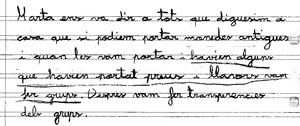 Marta ens va dir a tots que diguesim a
casa que si podiem portar monedes antigues
i quan les vam portar i havien alguns
que havien portat preus i llavors vam
fer grups. Despres vam fer transparencies
dels grups.